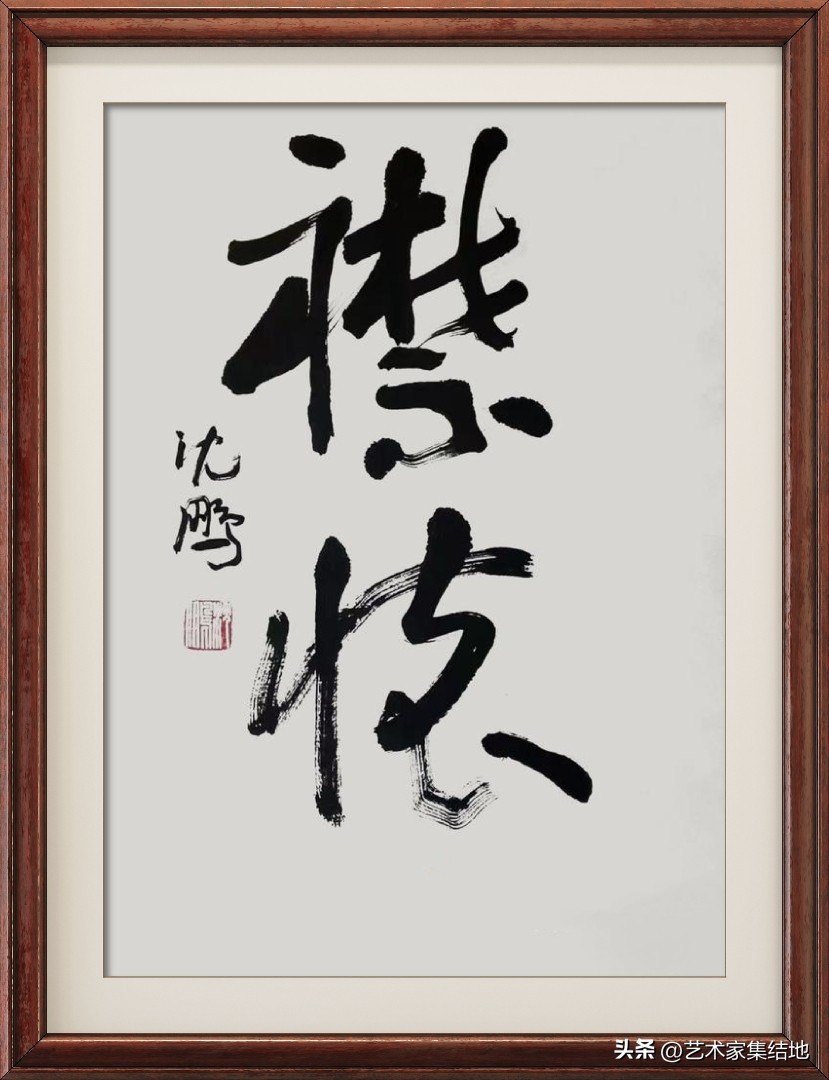 襟懷
沈鹏
头条 @艺术家集结地